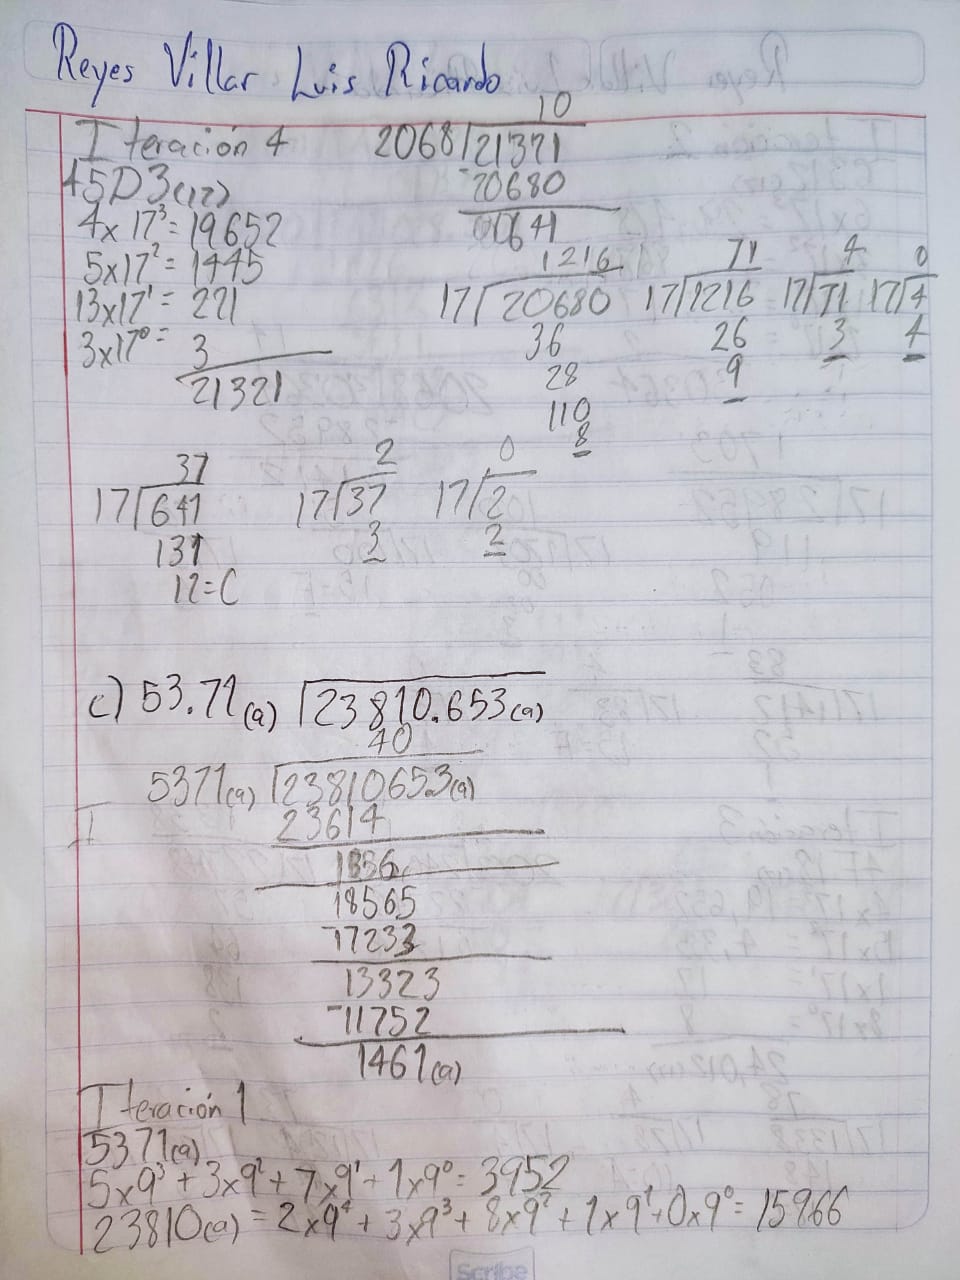 Reyes Villar Luis Ricardo
Iteración 4
45D3(17)
4x17³=19652
5x17²=1445
13x17¹=221
3x17⁰=3
21321
10
2068/21321
-20680
00641
1216
17/20680
36
28
110
8
71
17/1216
26
9
4
17/71
3
0
17/4
4
37
17/641
131
12=C
2
17/37
3
0
17/2
2
c) 53.71(9) /23810.653(9)
40
5371(9) /2381065.3(9)
23614
1856
18565
17233
13323
-11752
1461(9)
Iteración 1
5371(9)
5x9³+3x9²+7x9¹+1x9⁰=3952
23810(9)=2x9⁴+3x9³+8x9²+1x9¹+0x9⁰=15966
Scribe